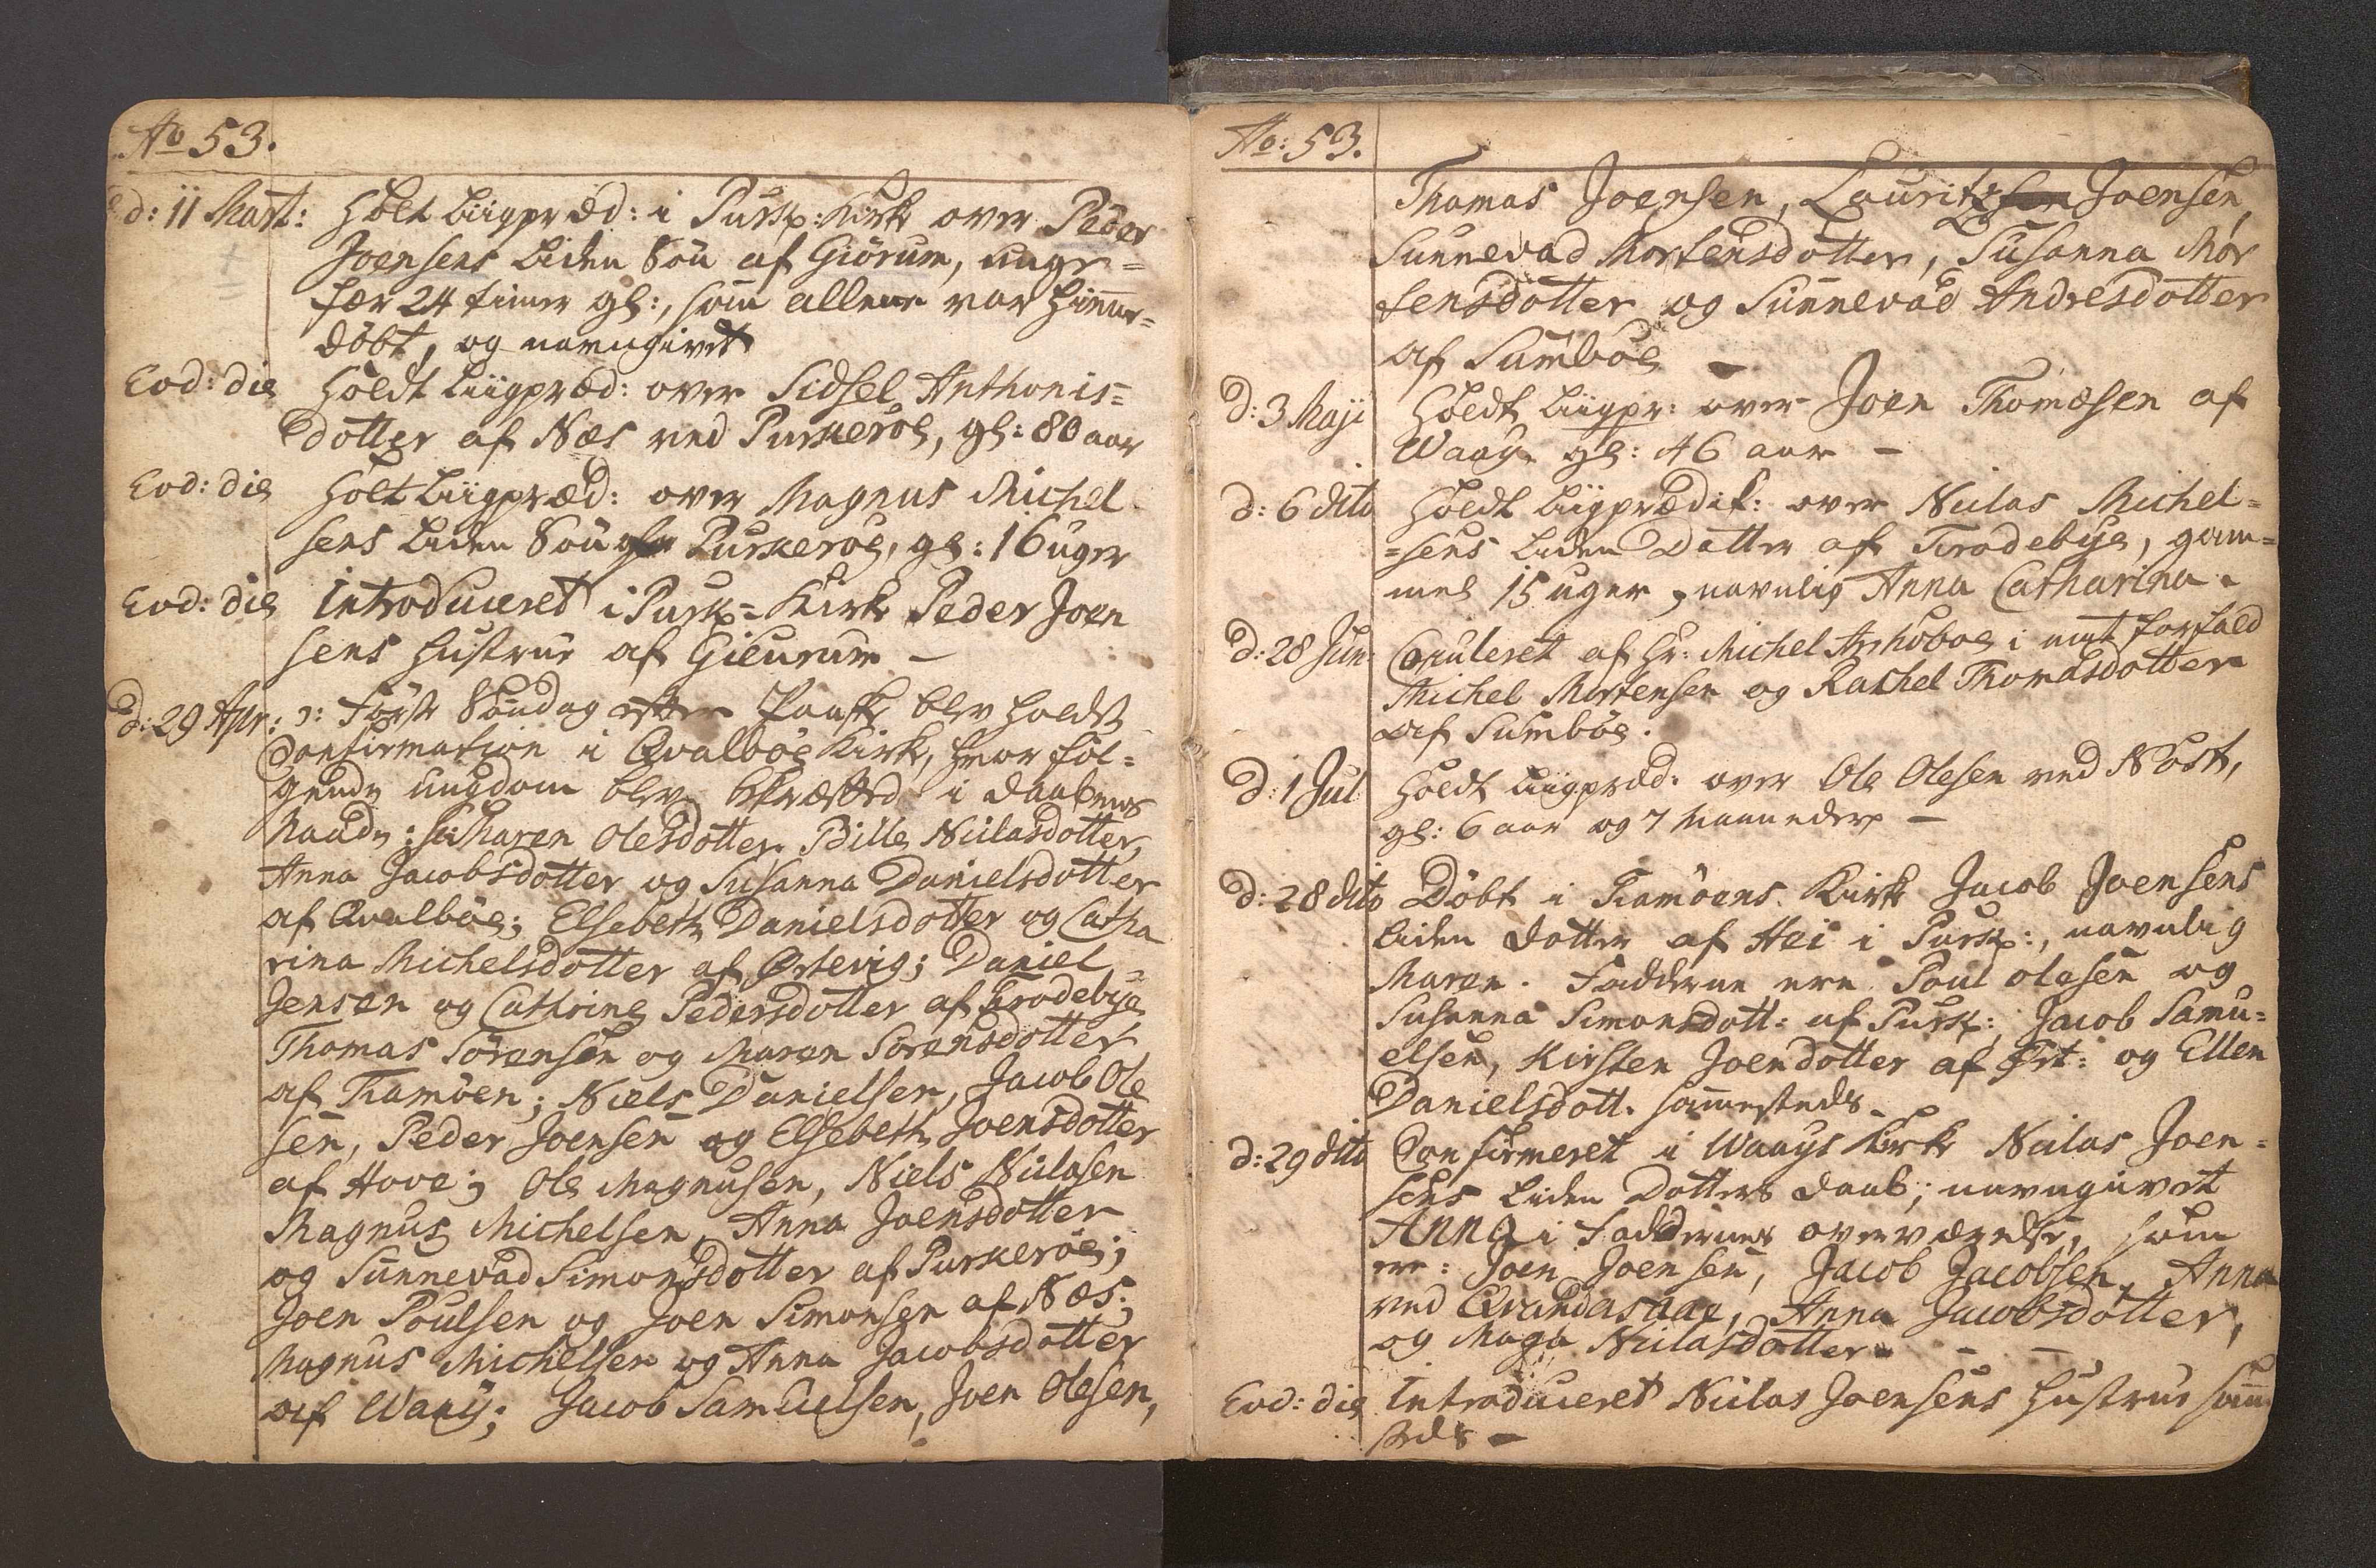 Ao 53.
d: 11 Mart: Holt Liigpræd: i Pursk: Kirke over Peder
Joensens Liden Søn af Giörum, unge-
fær 24 timer gl:, som allene var hiemme-
döbt, og navngivet
Eod: die Holdt Liigpræd: over Sidsel Anthonis=
dotter af Næs ved Purkeröe, gl: 80 aar
Eod: die Holt Liigpræd: over Magnus Michel
sens Liden Søn af Purkeröe, gl: 16 uger
Eod: die Introduceret i Pursk= Kirke Peder Joen
sens Hustrue af Gieurum –
d: 29 Apr: ɔ: Förste Söndag efter Paaske blev holdt
Confirmation i Qvalböe Kirke, hvor föl=
gende ungdom blev bekræfted i daabens
Naade: Maren Olesdotter Bille Niclasdotter,
Anna Jacobsdotter og Susanna Danielsdotter
af Qvalböe; Elsebeth Danielsdotter og Catha
rina Michelsdotter af Ørdevig; Daniel
Jensen og Cathrine Pedersdotter af Frodebye
Thomas Sörensen og Maren Sörensdotter
af Framöen; Niels Danielsen, Jacob Ole
sen, Peder Joensen og Elsebeth Joensdotter
af Hove; Ole Magnusen, Niels Niclasen
Magnus Michelsen, Anna Joensdotter
og Sunnevad Simonsdotter af Purkeröe;
Joen Poulsen og Joen Simonsen af Næs;
Magnus Michelsen og Anna Jacobsdotter
af Waay; Jacob Samuelsen, Joen Olesen,
Ao: 53.
Thomas Joensen, Lauritz Joensen,
Sunnevad Mortensdotter, Susanna Mor
tensdotter og Sunnevad Andresdotter
af Sumböe –
D: 3 Maji Holdt Liigpr: over Joen Thomæsen af
Waay gl: 46 aar –
d: 6 dito Holdt Liigprædik: over Niclas Michel=
=sens Liden Datter af Frodebye, gam=
mel 15 uger, navnlig Anna Catharina.
D: 28 Jun: Copuleret af Hr: Michel Arhboe i mit forfald
Michel Mortensen og Rachel Thomasdotter
af Sumböe.
D: 1 Jul Holdt Liigpræd: over Ole Olesen ved Nöst,
gl: 6 aar og 7 Maaneder –
d: 28 dito Döbt i Framöens Kirke Jacob Joensens
Liden dotter af Hei i Pursk:, navnlig
Maren. Fadderne ere Poul Olesen og
Susanna Simonsdott: af Pursk:, Jacob Samu=
elsen, Kirsten Joendotter af Ørt: og Ellen
Danielsdott. sammesteds
d: 29 dito Confirmeret i Waays Kirke Niclas Joen=
sens Liden Dotters daab; navngivet
Anna i Faddernes overværelse, som
ere: Joen Joensen, Jacob Jacobsen, Anna
ved Qvandasaae, Anna Jacobsdotter,
og Maga Niclasdotter – –
Eod: die Introduceret Niclas Joensens Hustrue sam
steds –